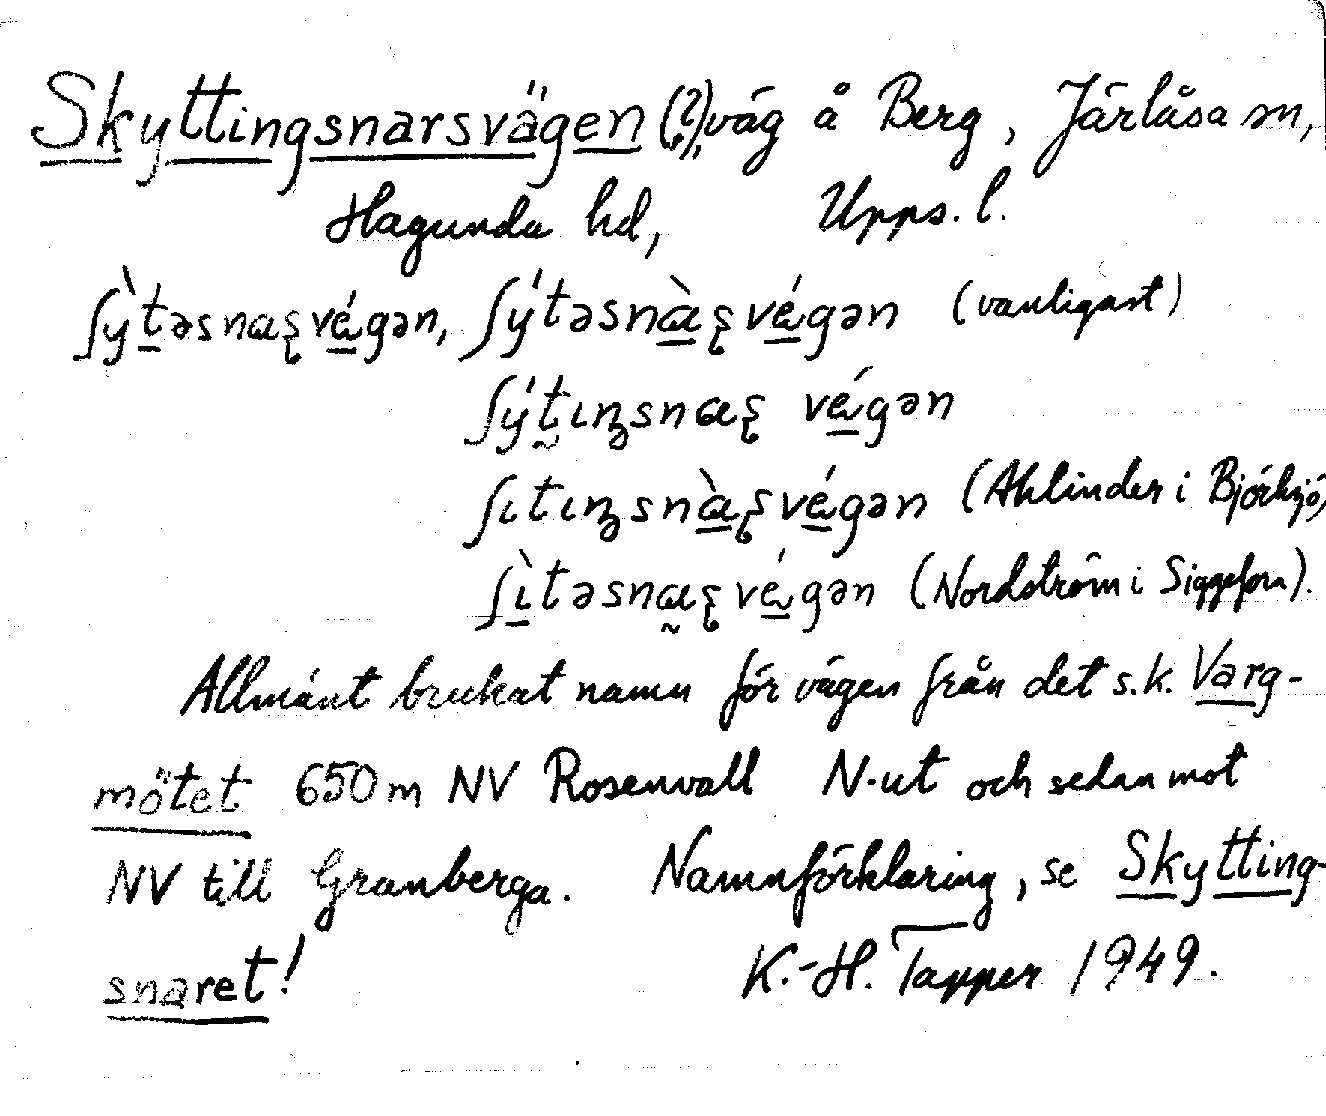 Skyttingsnarsvägen (?), väg å Berg, Järlåsa sn,
Hagunda hd, Upps. l.
ʃỳt̠əsnaʂvǽgən, ʃýtəsnàʂvǽgən (vanligast)
ʃýtɩŋsnaʂ vǽgən
ʃɩtɩŋsnàʂvǽgən (Ahlinder i Björksjö)
ʃɩ̀təsnaʂvǽgən (Nordström i Siggefora).
Allmänt brukat namn för vägen från det s.k. Varg-
mötet 650 m NV Rosenvall N-ut och sedan mot
NV till Granberga. Namnförklaring, se Skytting-
snaret!
K.-H. Tapper 1949.